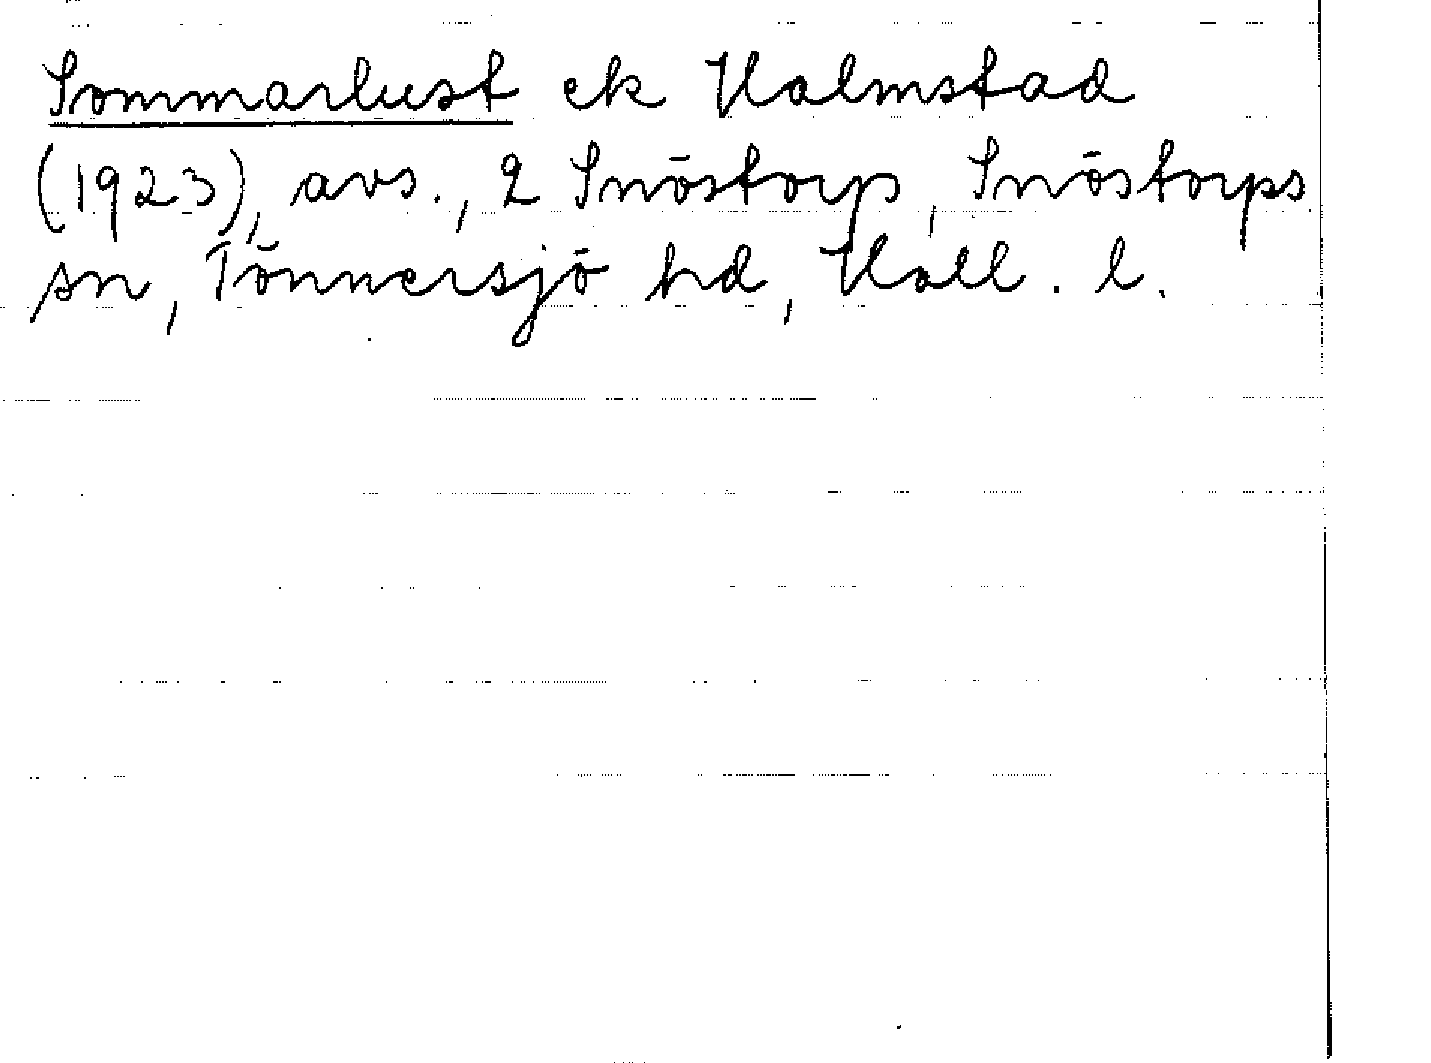 Sommarlust ek Halmstad
(1923), avs., 2 Snöstorp, Snöstorps
sn, Tönnersjö hd, Hall. l.